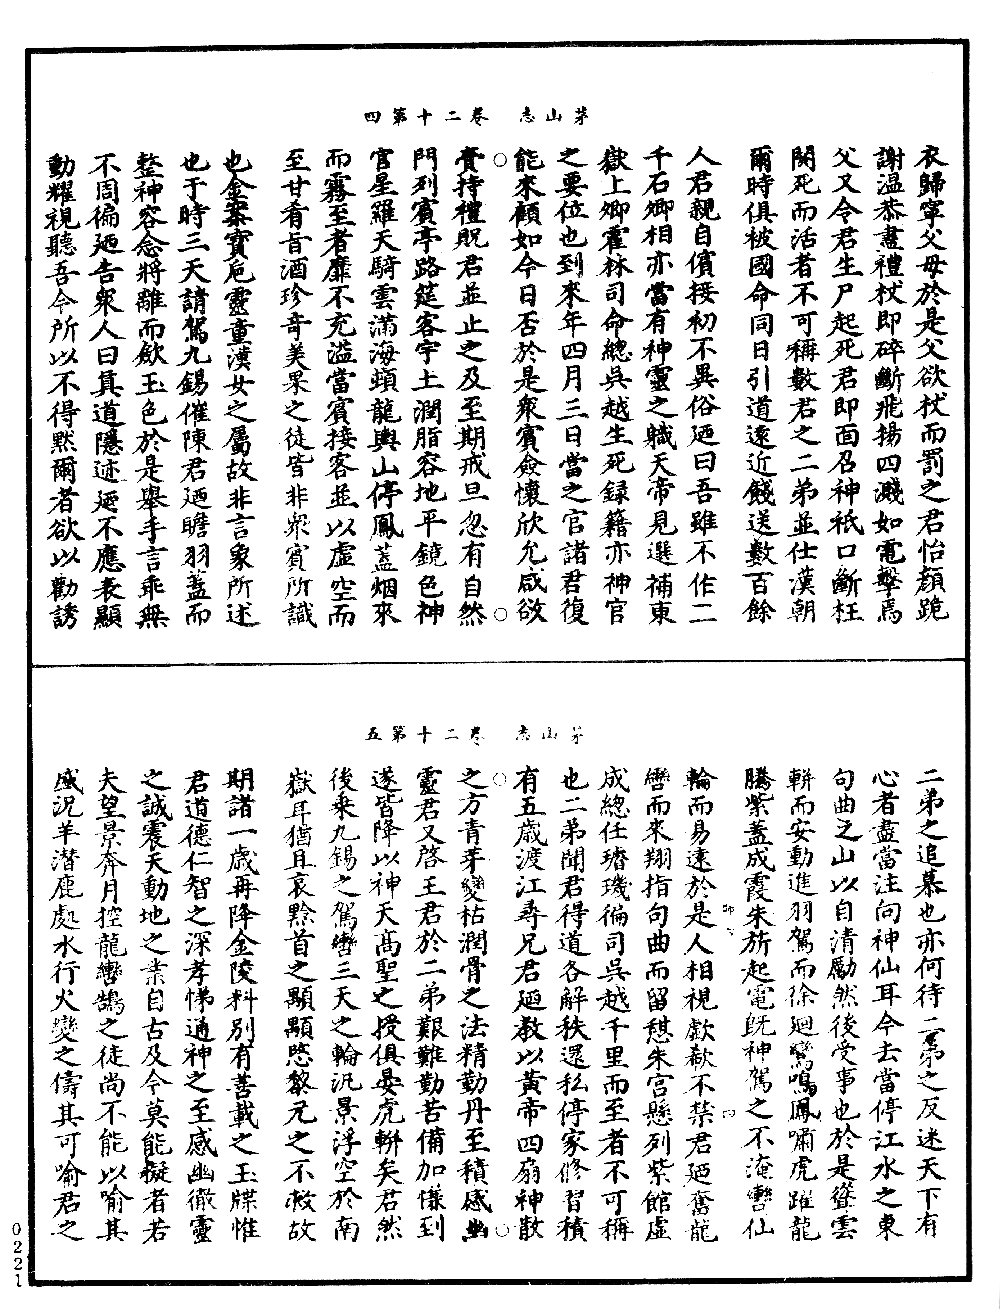 茅山志　卷二十第四
衣歸寧父母於是父欲杖而罰之君怡顏跪
謝溫恭盡禮杖即碎斷飛揚四濺如電擊焉
父又令君生尸起死君即面召神祇口斷枉
関死而活者不可稱數君之二弟並仕漢朝
爾時俱被國命同日引道遠近餞送數百餘
人君親自儐接初不異俗廼曰吾雖不作二
千石卿相亦當有神靈之職天帝見選補東
嶽上卿霍林司命總吳越生死録籍亦神官
之要位也到來年四月三日當之官諸君復
能來顧如今日否於是衆賓僉懷欣允咸欲
賫持禮貺君並止之及至期戒旦忽有自然
門列賓亭路筵客宇土潤脂容地平鏡色神
官星羅天騎雲滿海蝢龍輿山停鳳蓋烟來
而霧至者靡不充溢當賓接客並以虛空而
至甘肴旨酒珍竒美果之徒皆非衆賓所識
也金案寶巵靈童漢女之屬故非言象所述
也于時三天請駕九錫催陳君廼瞻羽蓋而
整神容念將離而歛玉色於是舉手言乖無
不周徧廼告衆人曰真道隱迹廼不應表顯
動耀視聽吾今所以不得默爾者欲以勸誘
茅山志　卷二十第五
二弟之追慕也亦何待二弟之反迷天下有
心者盡當注向神仙耳今去當停江水之東
句曲之山以自清勵然後受事也於是聳雲
軿而安動進羽駕而徐廻鸞鳴鳳嘯虎躍龍
騰紫蓋成霞朱旂起電旣神駕之不淹轡仙
輪而易遠於是人相視歔欷不禁君廼奮龍
轡而來翔指句曲而留憇朱宮懸列紫館虛
成總任璿璣徧司吳越千里而至者不可稱
也二弟聞君得道各解秩還私停家修習積
有五歳渡江尋兄君廼教以黃帝四扇神散
之方青芽變枯潤骨之法精勤丹至積感幽
靈君又啓王君於二弟艱難勤苦備加慺到
遂皆降以神天高聖之授俱晏虎軿矣君然
後乘九錫之駕轡三天之輪汎景浮空於南
嶽耳猶且哀黔首之顒顒愍黎元之不救故
期諸一歲再降金陵料別有善載之玉牒惟
君道德仁智之深孝悌通神之至感幽徹靈
之誠震天動地之業自古及今莫能擬者若
夫望景奔月控龍轡鵠之徒尚不能以喻其
盛況羊潛鹿處水行火變之儔其可喻君之
0221